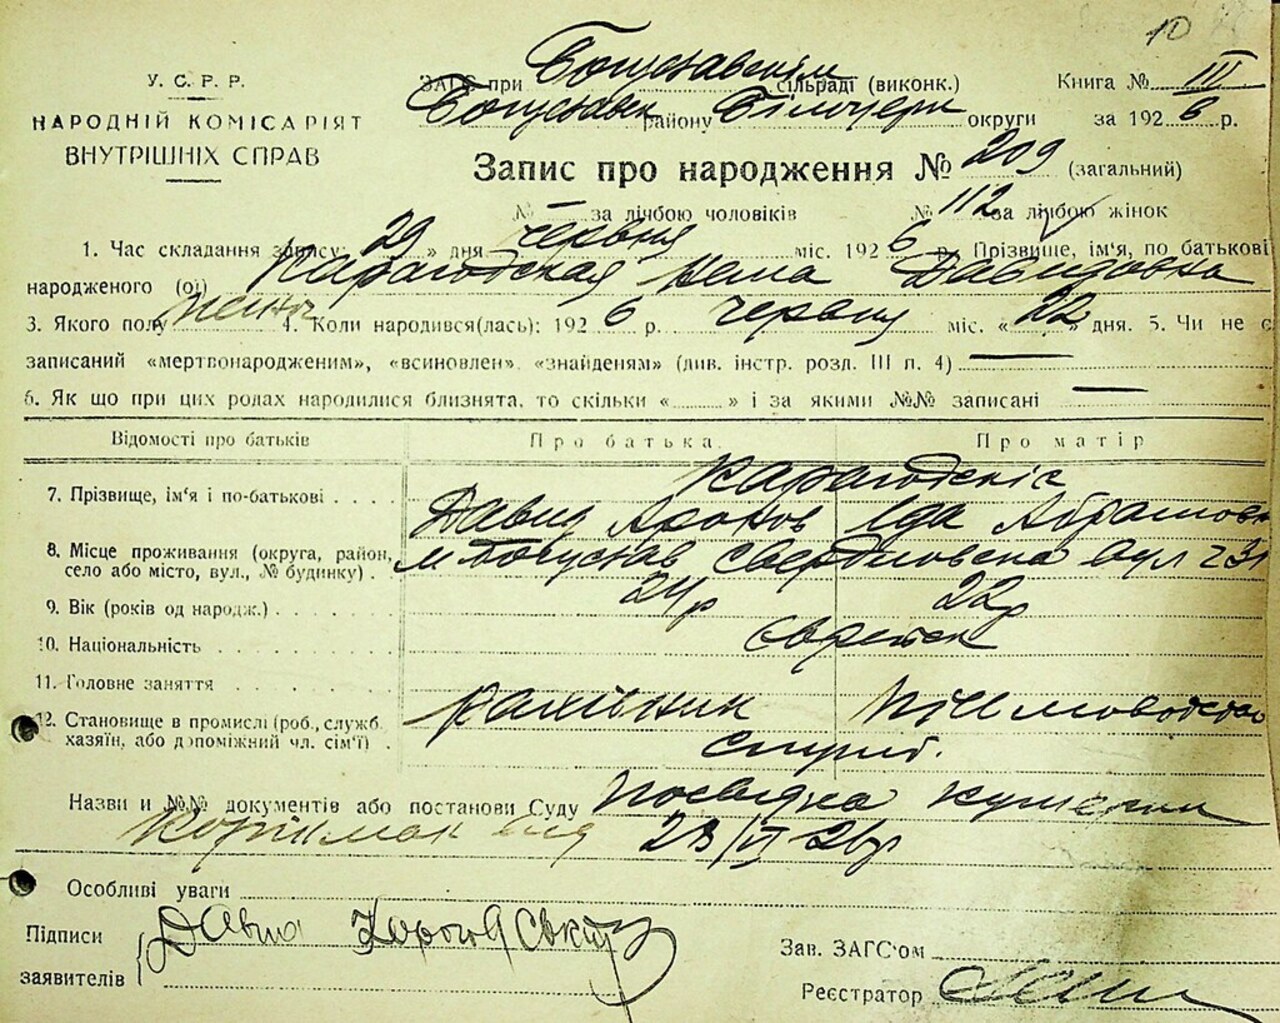 10
У. С. Р. Р.
НАРОДНІЙ КОМІСАРІЯТ
ВНУТРІШНІХ СПРАВ
ЗАГС при Богуславскім сільраді (виконк.) Книга № III
Богуславск району Білоцерк округи за 1926 р.
Запис про народження № 209 (загальний)
№ — за лічбою чоловіків № 112 за лічбою жінок
1. Час складання запису: 29 » дня червня міс. 1926 р. Прізвище, ім'я, по батькові
народженого (ої) Карагодская Неля Давидовна
3. Якого полу жіноч 4. Коли народився(лась): 1926 р. червня міс. «22» дня. 5. Чи не є
записаний «мертвонародженим», «всиновлен», «знайденям» (див. інстр. розд. III п. 4) —
6. Як що при цих родах народилися близнята, то скільки « » і за якими №№ записані —
Відомості про батьків Про батька Про матір
7. Прізвище, ім'я і по-батькові . . . . Карагодскіє
Давид Аронов Іда Абрамовн
8. Місце проживання (округа, район, м Богуслав Свердловска вул ч 31
село або місто, вул., № будинку) .
9. Вік (років од народж.) 24 р 22 р
10. Національність евреиск
11. Головне заняття
Рахівник
12. Становище в промислі (роб., служб.
хазяїн, або допоміжний чл. сім'ї) . служб.
Назви и №№ документів або постанови Суду посвідка
23/VI 26 р
Особливі уваги
Підписи Давид
заявителів
Зав. ЗАГС'ом
Реєстратор